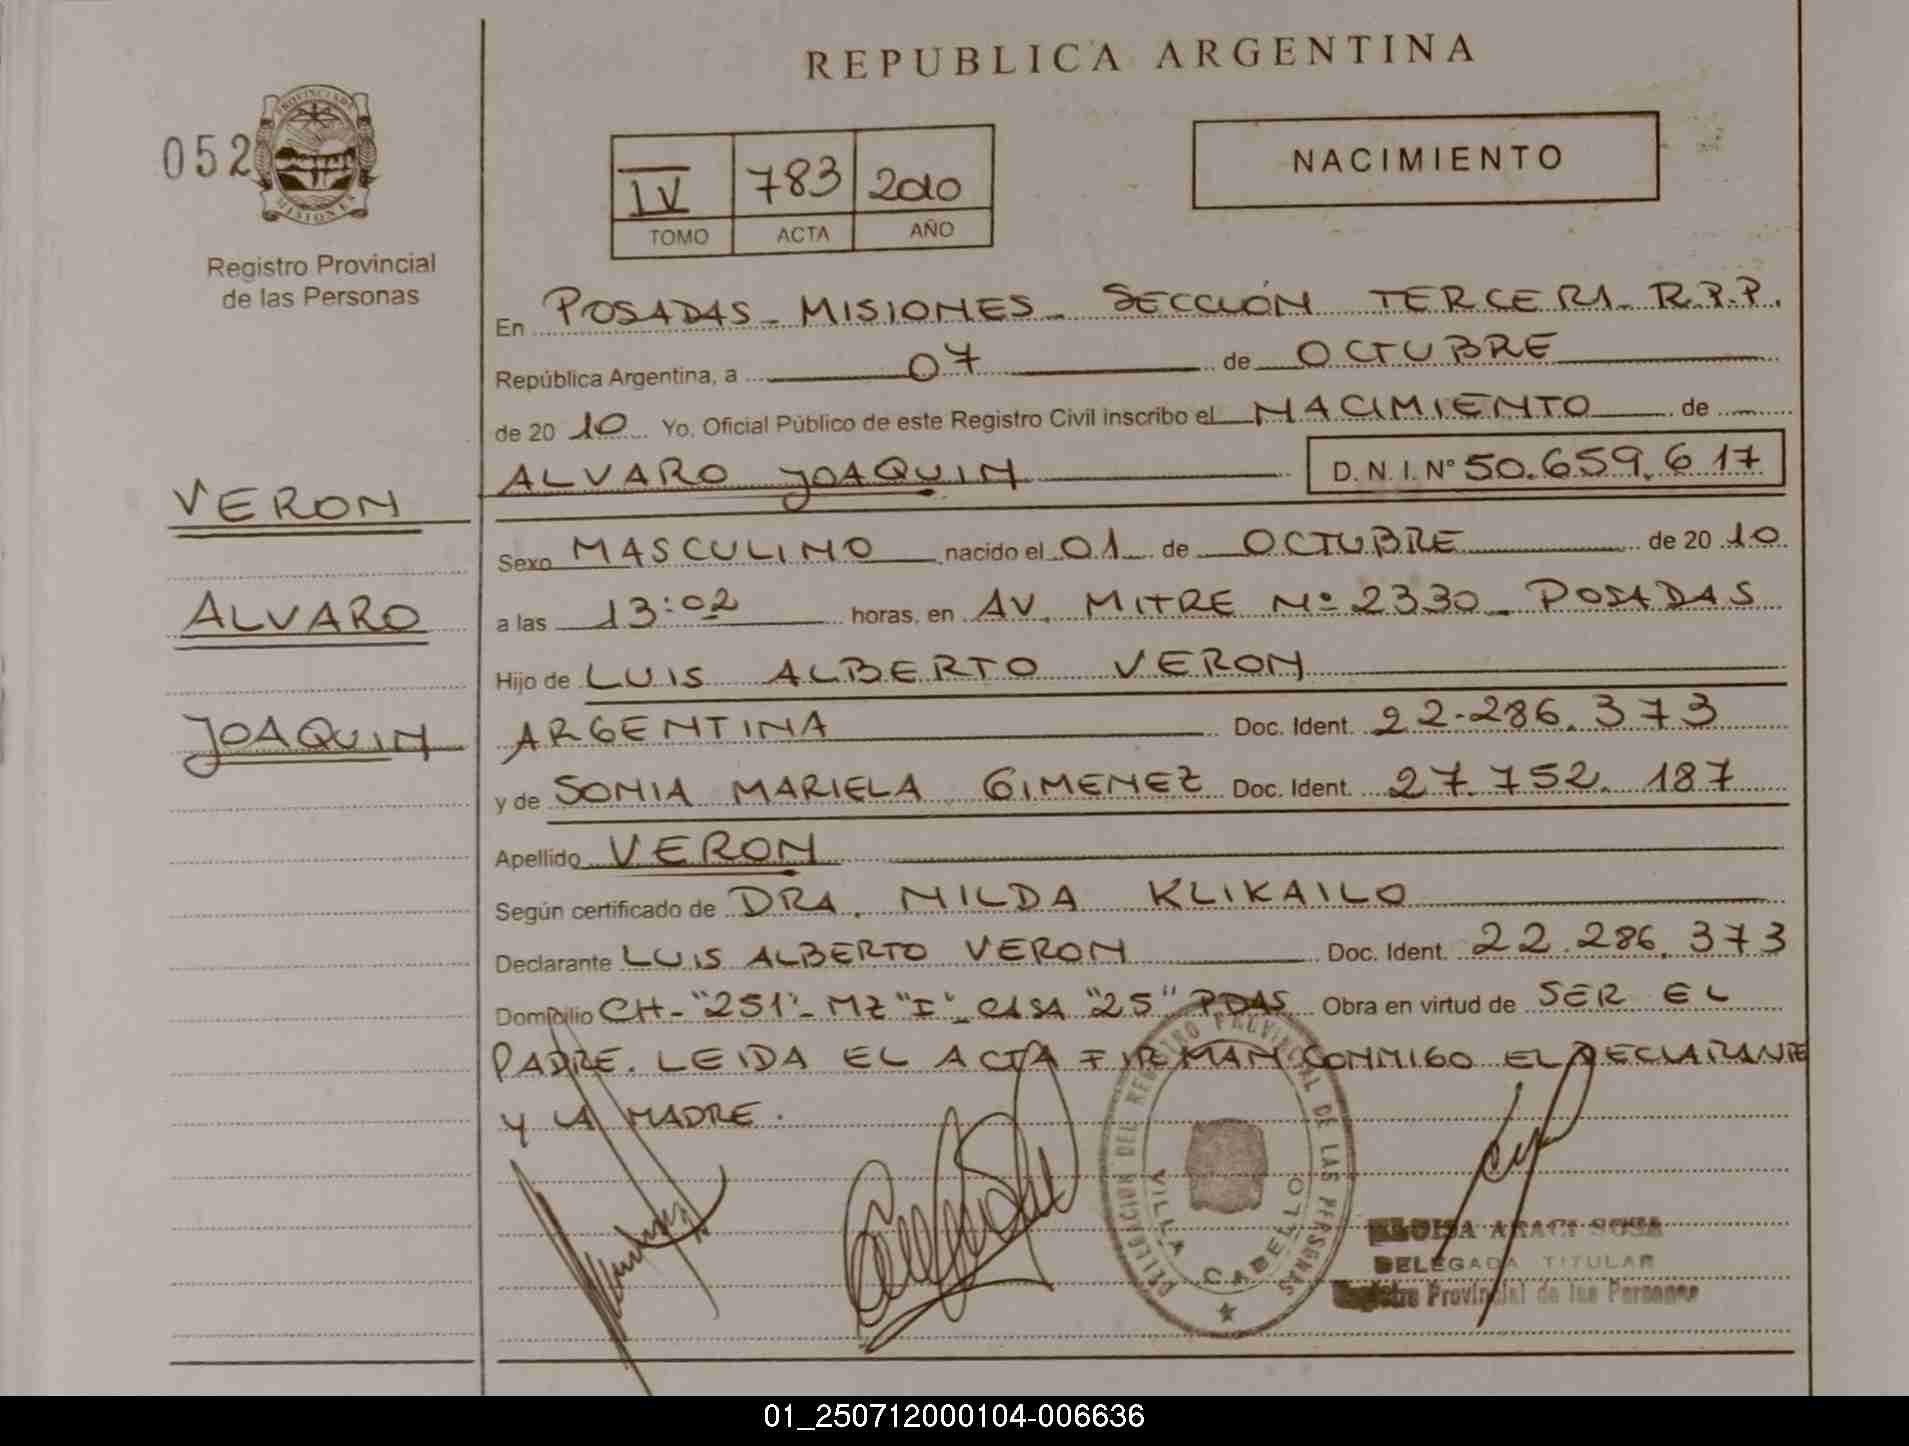 REPUBLICA ARGENTINA
052
PROVINCIA DE
MISIONES
Registro Provincial
de las Personas
IV 783 2010
TOMO ACTA AÑO
NACIMIENTO
En POSADAS - MISIONES - SECCIÓN TERCERA R.P.P.
República Argentina, a 07 de OCTUBRE
de 20 10 Yo, Oficial Público de este Registro Civil inscribo el NACIMIENTO de
ALVARO JOAQUIN D.N.I. Nº 50.659.617
VERON
ALVARO
JOAQUIN
Sexo MASCULINO nacido el 01 de OCTUBRE de 20 10
a las 13:02 horas, en AV. MITRE Nº 2330 - POSADAS
Hijo de LUIS ALBERTO VERON
ARGENTINA Doc. Ident. 22-286.373
y de SONIA MARIELA GIMENEZ Doc. Ident. 27.752.187
Apellido VERON
Según certificado de DRA. NILDA KLIKAILO
Declarante LUIS ALBERTO VERON Doc. Ident. 22.286.373
Domicilio CH- "251"- MZ "I"- CASA "25" PDAS Obra en virtud de SER EL
PADRE. LEIDA EL ACTA FIRMAN CONMIGO EL DECLARANTE
Y LA MADRE.
DELEGACION DEL REGISTRO PROVINCIAL DE LAS PERSONAS
VILLA CABELLO
ELOISA ARACI SOSA
DELEGADA TITULAR
Registro Provincial de las Personas
01_250712000104-006636